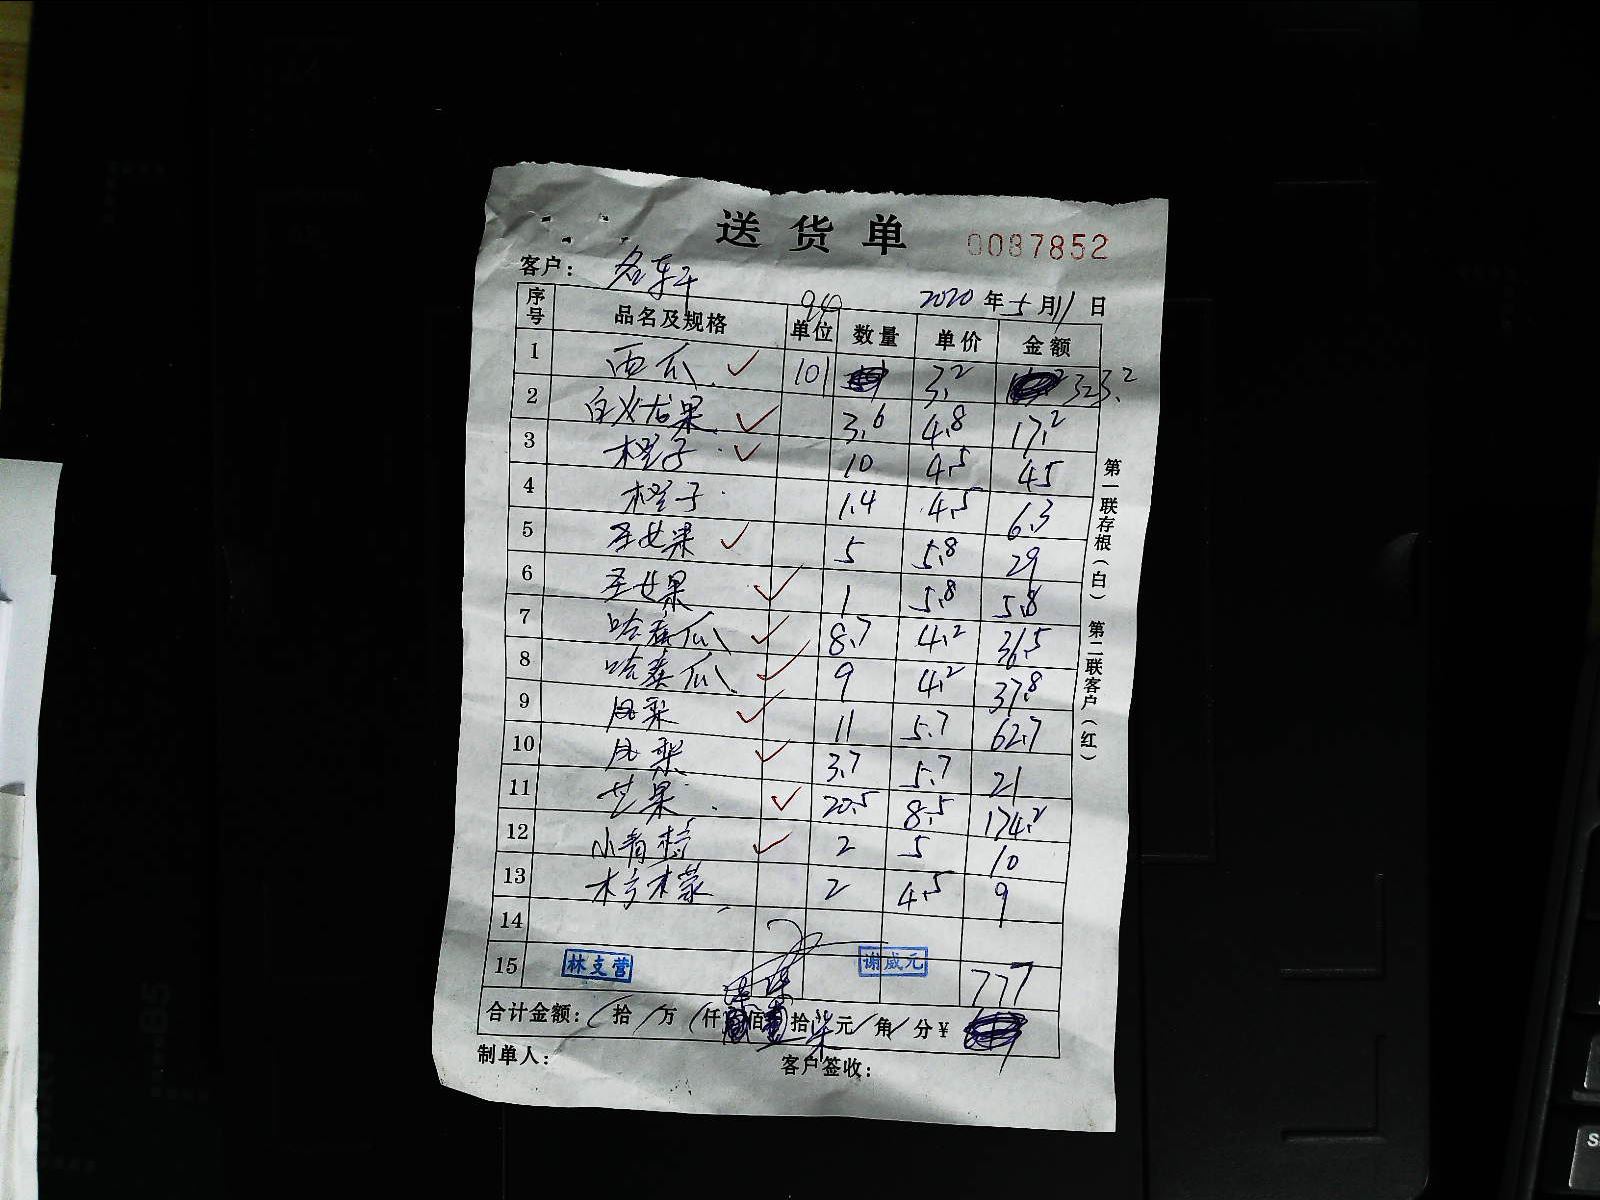 送货单 0087852
客户: 名轩
2020年5月11日
序号 品名及规格 单位 数量 单价 金额
1 西瓜 101 3.2 323.2
2 白火龙果 3.6 4.8 17.2
3 橙子 10 4.5 45
4 橙子 1.4 4.5 6.3
5 圣女果 5 5.8 29
6 圣女果 1 5.8 5.8
7 哈蜜瓜 8.7 4.2 36.5
8 哈蜜瓜 9 4.2 37.8
9 凤梨 11 5.7 62.7
10 凤梨 3.7 5.7 21
11 芒果 20.5 8.5 174.2
12 小青柠 2 5 10
13 柠檬 2 4.5 9
14
15 林支营 谢威元 777
合计金额: 拾 万 仟 柒 佰 柒 拾 柒 元 角 分 ¥
制单人: 客户签收:
第一联存根(白) 第二联客户(红)